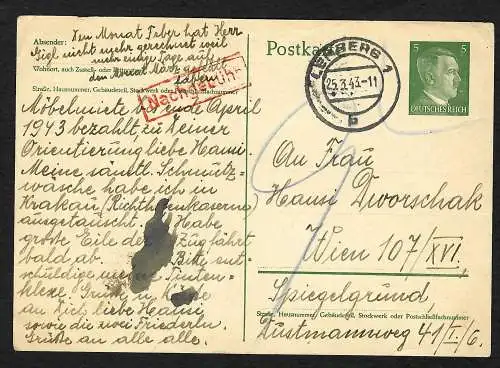 Absender: Im Monat Feber hat Herr
Gigl nicht mehr gerechnet weil
mehr einige Tage auf
Wohnort, auch Zustell- oder
den Monat März
haben
Straße, Hausnummer, Gebäudeteil, Stockwerk oder
Nachgebühr
Möbelmiete ist Ende April
1943 bezahlt, zu Deiner
Orientierung liebe Hansi
Meine sämtl. Schmutz-
wäsche habe ich in
Krakau (Richthofenkaserne)
ausgetauscht. Habe
große Eile der Zug fährt
bald ab. Bitte ent-
schuldige meine Tinten-
klexe. Gruß u. Küsse
an Dich liebe Hansi
sowie die zwei Friederln.
Grüße an alle alle.
Postkarte
LEMBERG 1
25.3.43.-11
b
5 5
DEUTSCHES REICH
An Frau
Hansi Dworschak
Wien 107/XVI.
Spiegelgrund,
Straße, Hausnummer, Gebäudeteil, Stockwerk oder Postschließfachnummer
Dustmannweg 41/I./6.